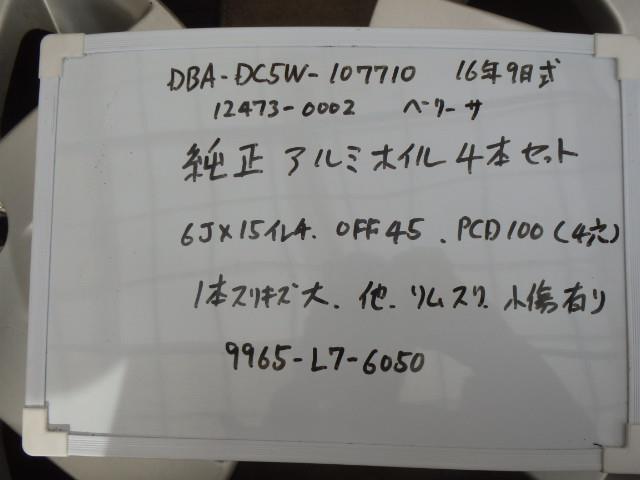 DBA-DC5W-107710 16年9月式
12473-0002 ベリーサ
純正 アルミホイル 4本セット
6J×15インチ. OFF45. PCD100(4穴)
1本スリキズ大. 他. リムスリ. 小傷有り
9965-L7-6050